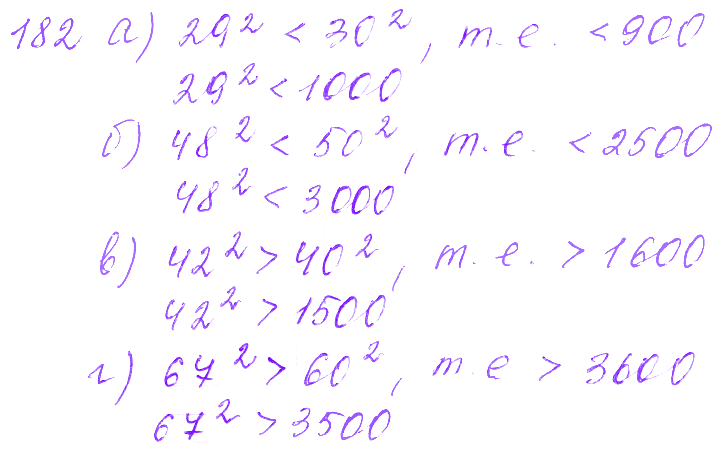 182 а) 29² < 30², т.е. < 900
29² < 1000
б) 48² < 50², т.е. < 2500
48² < 3000
в) 42² > 40², т.е. > 1600
42² > 1500
г) 67² > 60², т.е > 3600
67² > 3500